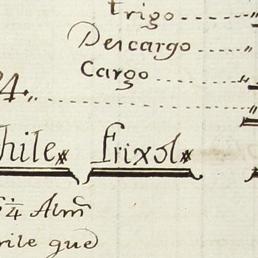 trigo
Descargo
Cargo
4.
hile Frixol
¼ Alm̃
rile que